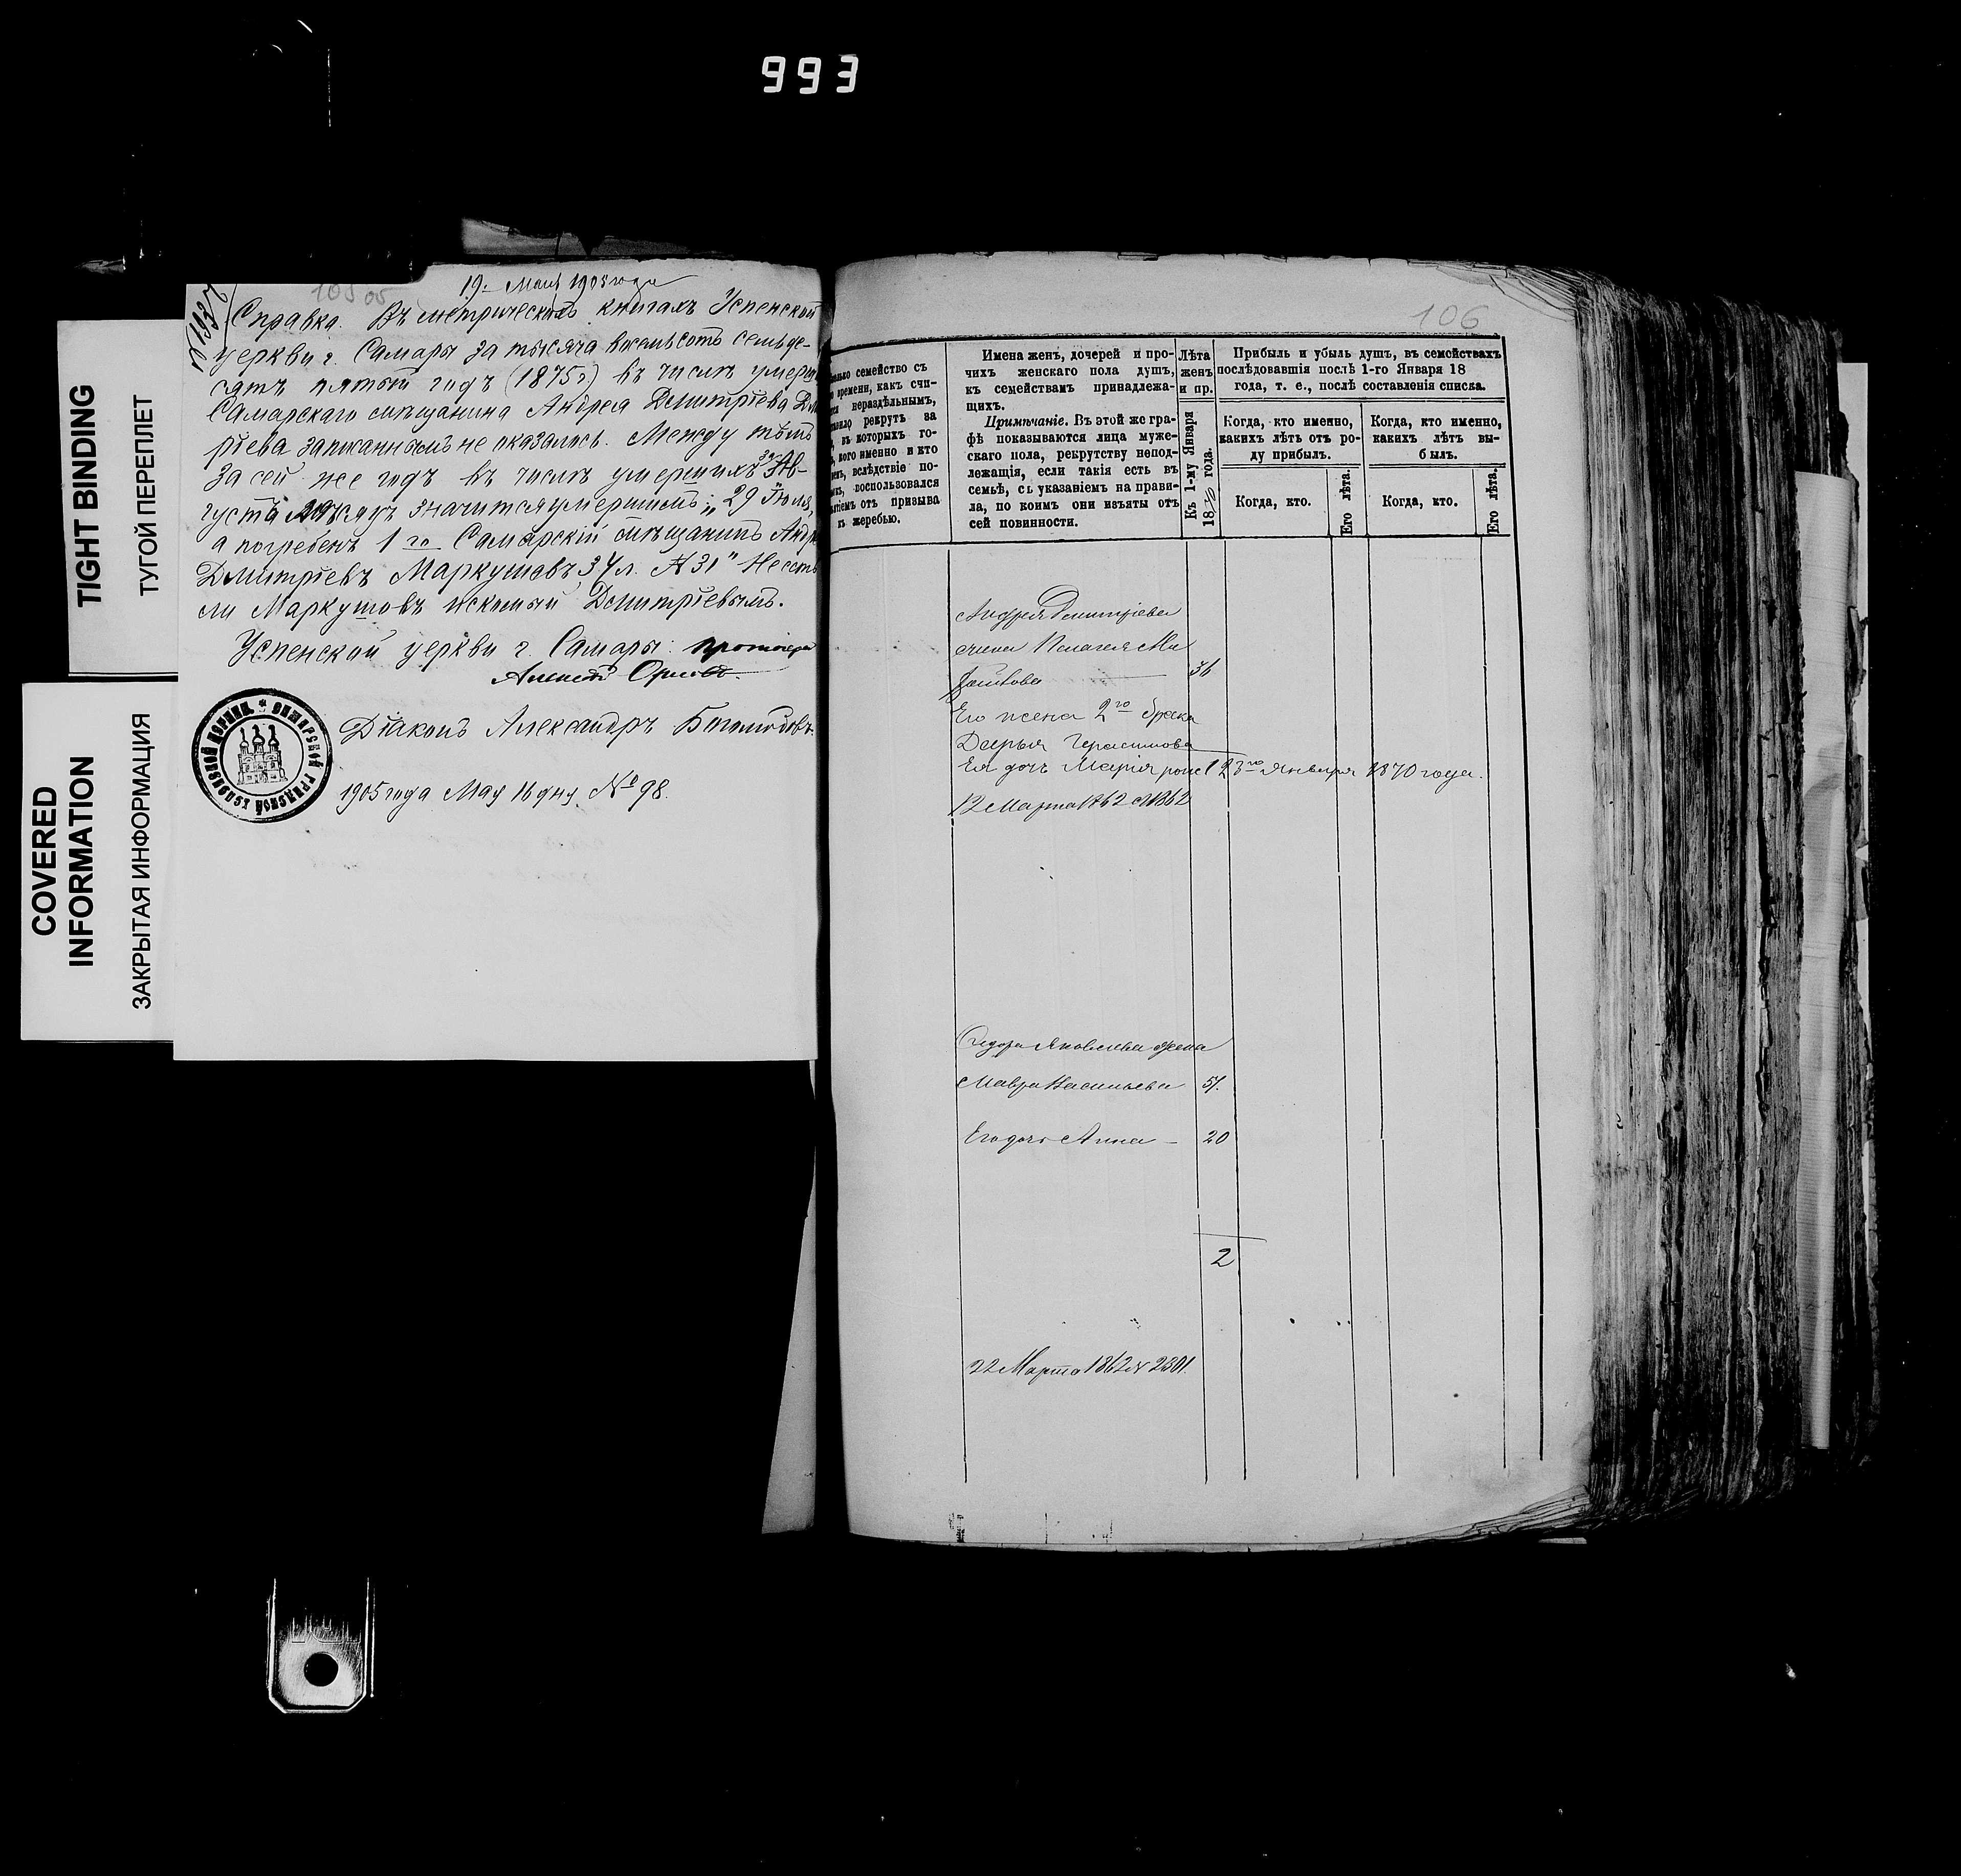 993
TIGHT BINDING
ТУГОЙ ПЕРЕПЛЕТ
COVERED
INFORMATION
ЗАКРЫТАЯ ИНФОРМАЦИЯ
105 об
19 Мая 1905 года
Справка. Въ метрическихъ книгахъ Успенской
церкви г. Самары за тысяча восемьсотъ семьде-
сятъ пятый годъ (1875 г) въ числѣ умерш
Самарскаго мѣщанина Андрея Дмитріева Дм
ріева записаннымъ не оказалось. Между тѣмъ
за сей же годъ въ числѣ умершихъ за Ав-
густъ мѣсяцъ значится умершимъ: „29 Іюля,
а погребенъ 1 го Самарскій мѣщанинъ Андр
Дмитріевъ Маркушовъ, 34 л. № 31" Не есть
ли Маркушовъ искомый Дмитріевымъ.
Успенской церкви г. Самары: протоіерей
Алексѣй Орловъ.
Діаконъ Александръ Боголюбовъ.
1905 года Мая 16 дня № 98.
106
семейство съ
времени, какъ счи-
нераздѣльнымъ,
рекрутъ за
въ которыхъ го-
кого именно и кто
вслѣдствіе по-
воспользовался
отъ призыва
жеребью.
Имена женъ, дочерей и про-
чихъ женскаго пола душъ,
къ семействамъ принадлежа-
щихъ.
Примѣчаніе. Въ этой же гра-
фѣ показываются лица муже-
скаго пола, рекрутству непод-
лежащія, если такія есть въ
семьѣ, съ указаніемъ на прави-
ла, по коимъ они изъяты отъ
сей повинности.
Лѣта
женъ
и пр.
Къ 1-му Января
1870 года.
Прибыль и убыль душъ, въ семействахъ
послѣдовавшія послѣ 1-го Января 18
года, т. е., послѣ составленія списка.
Когда, кто именно,
какихъ лѣтъ отъ ро-
ду прибылъ.
Когда, кто именно,
какихъ лѣтъ вы-
былъ.
Когда, кто.
Его лѣта.
Когда, кто.
Его лѣта.
Андрея Дмитріева
жена Пелагея Ми
36
Его жена 2го брака
Дарья Герасимова
Ея дочь Марія род. 23го Января 1870 года.
12 Марта 1862 № 1362
Сидора Яковлева жена
Мавра Васильева 51.
Его дочь Анна — 20
2
22 Марта 1862 № 2301.